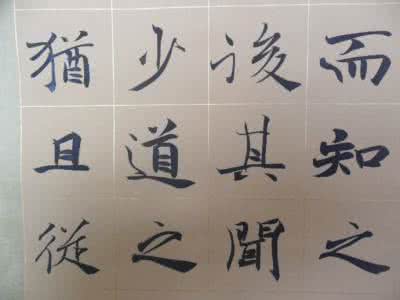 而知之
後其聞
少道之
猶且從